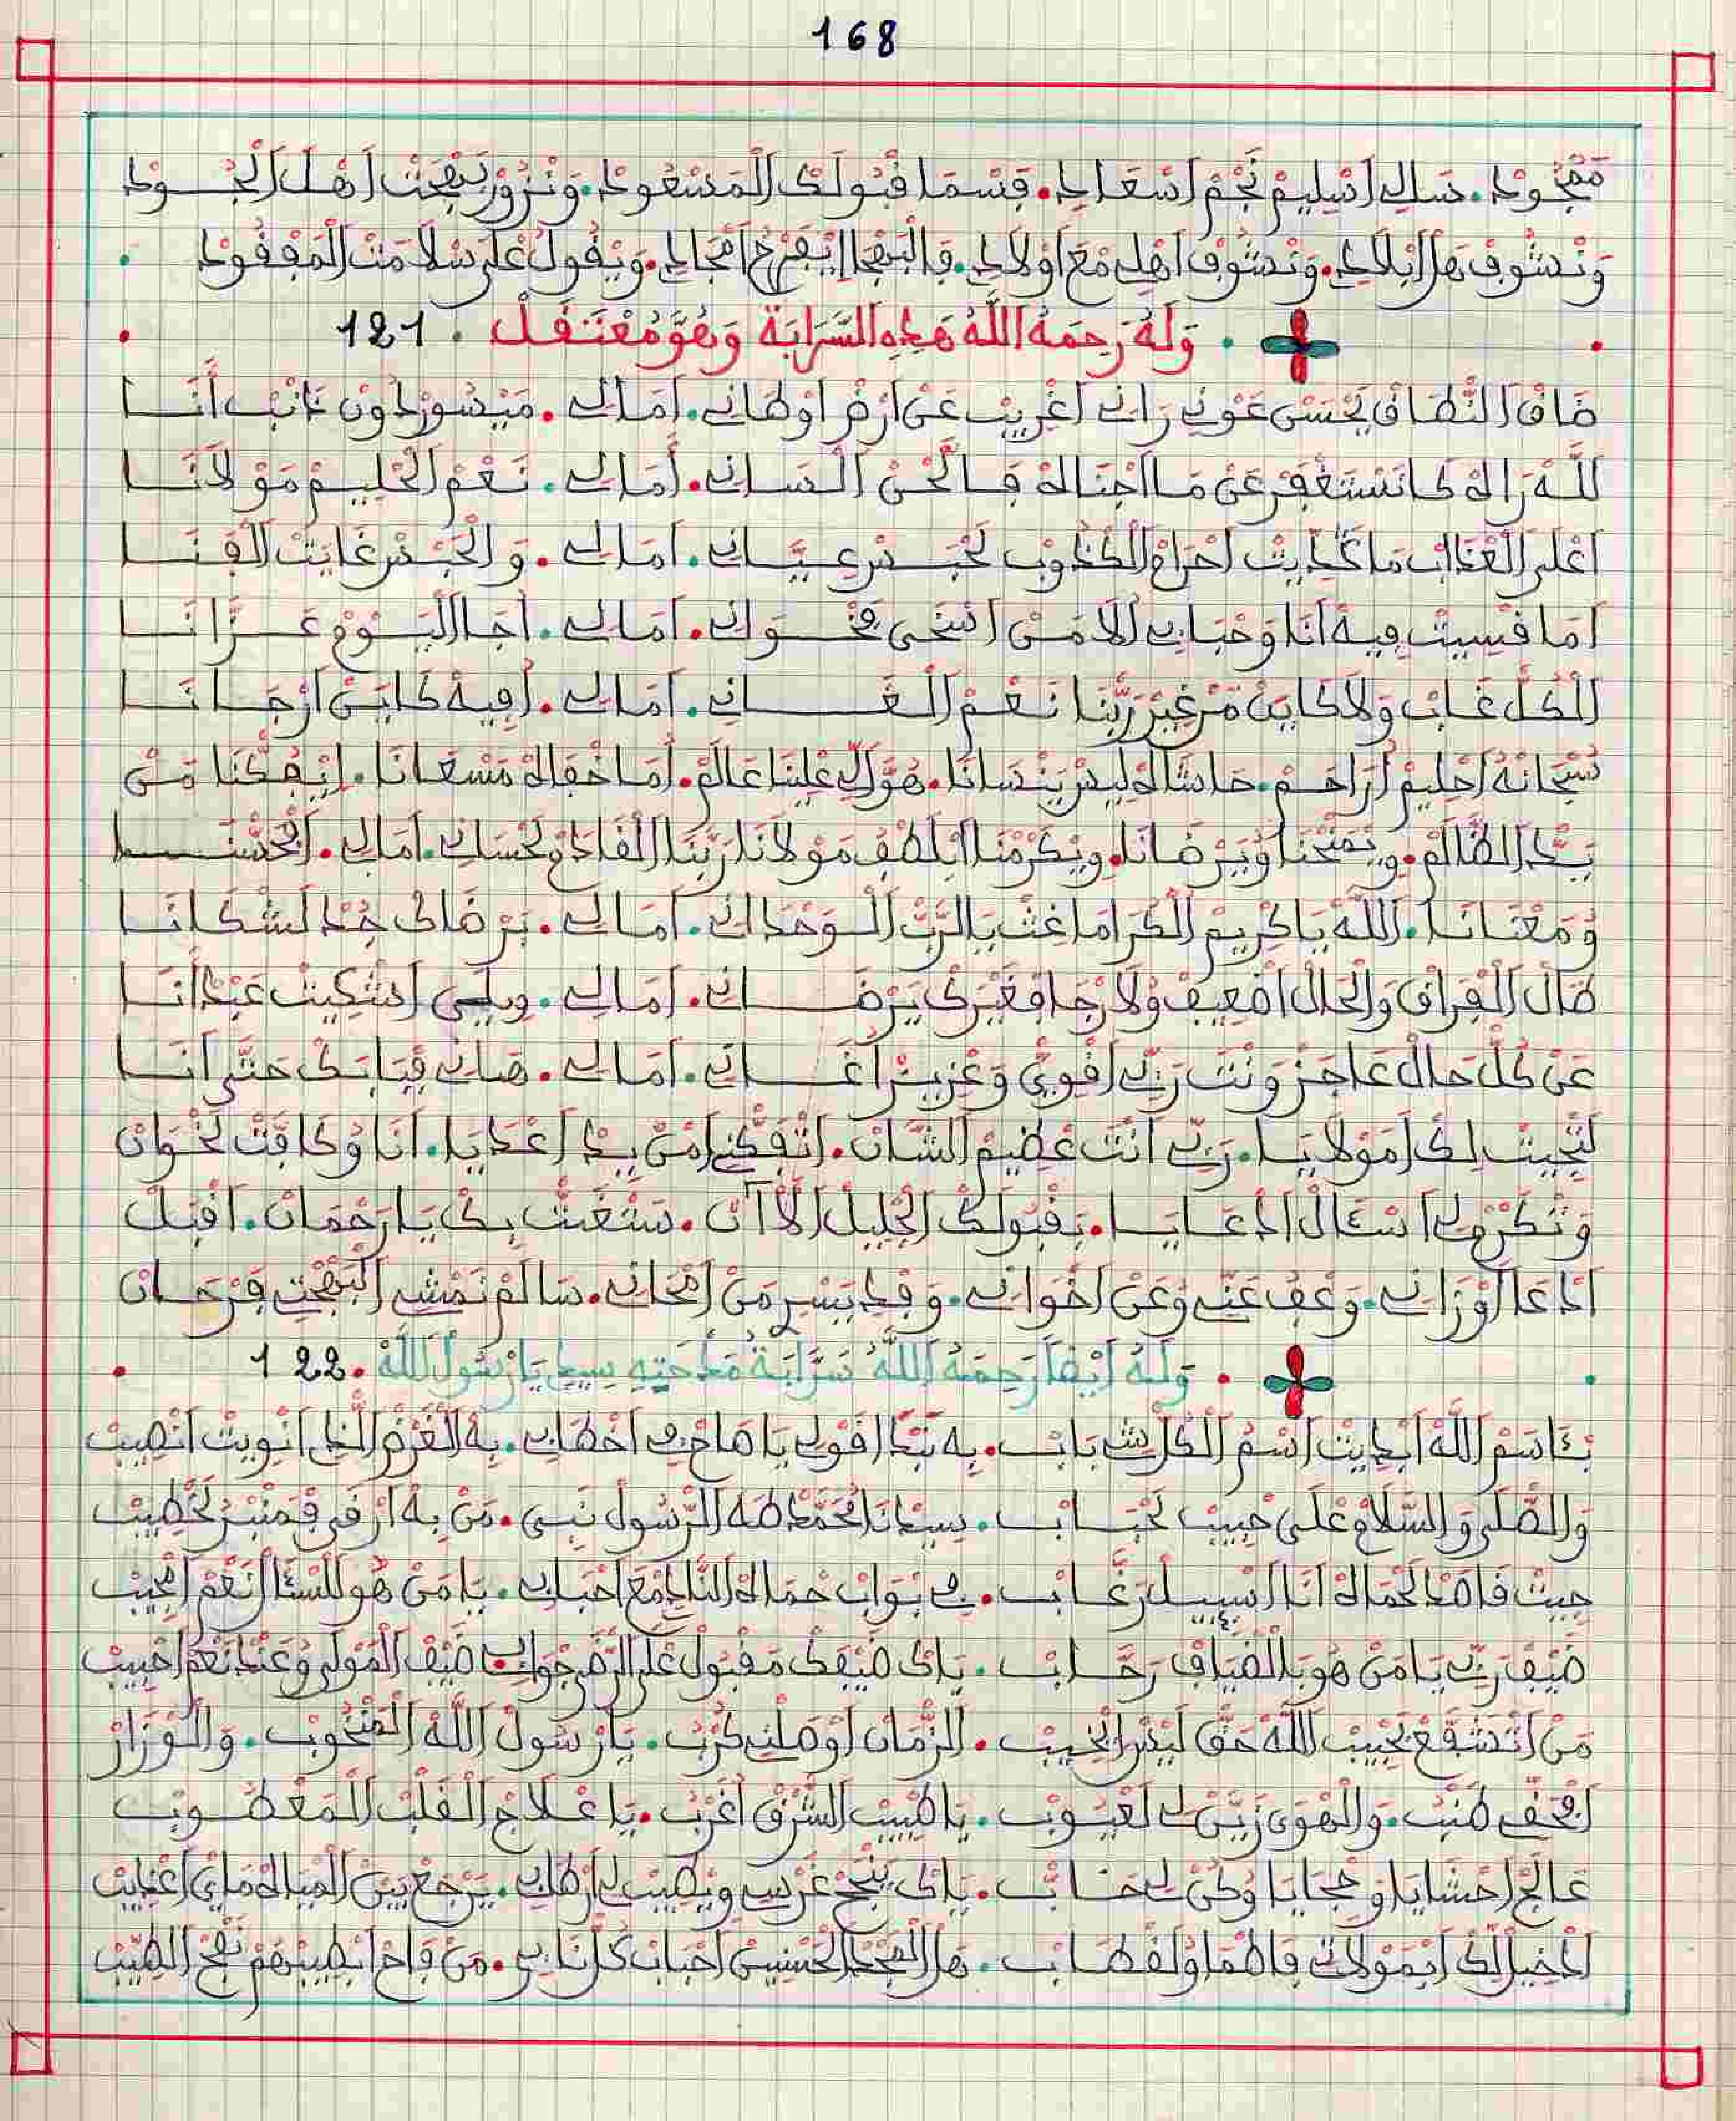 168
مَمْجُودْ. سَالِي اسْلِيمْ نَجْمْ اسْعَادِي. قِسْمَا قْبُولَكْ الْمَسْعُودْ. وَنْزُورْ بَهْجَتْ اَهْلْ الْجُودْ
وَنْشُوفْ هَلْ ابْلَادِي. وَنْشُوفْ اَهْلِي مْعَ اوْلَادِي. وَالْبَهْجَا ايْفَرَّحْ امْجَادِي. وَيْقُولْ عْلَى سْلَامَتْ الْمَفْقُودْ
وَلَهُ رَحِمَهُ اللَّهُ هَذِهِ السَّرَابَةَ وَهُوَ مُعْتَقَلْ. 121
ضَاقْ النْطَاقْ يَحْسَنْ عَوْنِي رَانِي اغْرِيبْ عَنْ ارْضْ اوْطَانِي. اَمَالِي. مَيْسُورْ دُونْ دَنْبْ اَنَا
للَّهْ رَاهْ كَانَسْتَغْفَرْ عَنْ مَا اجْنَاهْ فَالْحَنْ الْسَانِي. اَمَالِي. نَعْمْ الْحْلِيمْ مَوْلَانَا
اعْلَى الْعْذَابْ مَا كَدِّيتْ احْرَاجْ الكْدُوبْ لَحْبَسْ عِيَّانِي. اَمَالِي. وَالْحَبْسْ غَايَتْ الْفْنَا
اَمَا قْسِيتْ فِيهْ اَنَا وَحْبَابِي الَا مَنْ اسْخَى فَخْوَانِي. اَمَالِي. اجَا الْيَوْمْ عَزَّانَا
الْكُلّْ غَابْ وَلَا كَايَنْ مَنْ غِيرْ رَبّْنَا نَعْمْ الْغَانِي. اَمَالِي. افِيهْ كَايَنْ ارْجَانَا
سُبْحَانَهُ احْلِيمْ ارَاحَمْ. حَاشَاهْ لِيسْ يَنْسَانَا. هُوَّ لِّي عْلِينَا عَالَمْ. اَمَا خْفَاهْ مَسْعَانَا. ايْفَكّْنَا مَنْ
يَدّْ الظَّالَمْ. وِيمَنْحْنَا وُيَرْضَانَا. وِيكَرْمْنَا ابْلَطْفْ مَوْلَانَا رَبّْنَا الْقَادَرْ لَحْسَانِي. اَمَالِي.
وُمَعْنَانَا. اللَّهْ يَا كْرِيمْ الْكُرَامَا غِثْ يَا الرَّبْ الْوَحْدَانِي. اَمَالِي. بَرْضَاكْ جُدْ لَشْكَانَا
طَالْ الْفْرَاقْ وَالْحَالْ اضْعِيفْ وُلَا رْجَا فْغَيْرَكْ يَرْضَانِي. اَمَالِي. وِيلَى اشْكِيتْ عَبْدْ اَنَا
عَنْ كُلّْ حَالْ عَاجَزْ وَنْتَ رَبِّي اقْوِيّْ وَعْزِيزْ اغَانِي. اَمَالِي. هَانِي فْبَابَكْ حَتَّى اَنَا
لَتْجِيتْ لِكْ اَمَوْلَايَا. رَبِّي اَنْتَ عْظِيمْ الشَّانْ. اتْفَكّْنِي مَنْ يِدّْ اعْدَايَا. اَنَا وُكَافَّتْ لَخْوَانْ
وَتْكَرَّمْ لِي اسْئَالْ ادْعَايَا. بَقْبُولَكْ الْجْلِيلْ الْاَنْ. سَتْغَتْ بِكْ يَا رَحْمَانْ. اقْبَلْ
ادْعَا اوْزَانِي. وَعْفُ عَنِّي وُعَنْ اخْوَانِي. وَقْدْ يَسّْرْ مَنْ امْحَانِي. سَالَمْ نَمْشِي الْبَهْجَتِي فَرْحَانْ
وَلَهُ اَيْضًا رَحِمَهُ اللَّهُ سَرَّابَةُ مَدْحَتِهِ سِيدِي يَا رَسُولْ اللَّهْ. 122
بِسَاسْمْ اللَّهْ ابْدِيتْ اسْمْ الْكُلّْ شِي بَابْ. بِهْ نَبْدَا قَوْلِي يَا صَاحْ فِي اخْطَابِي. بِهْ الْغَرْضْ الْدِي انْوِيتْ انْصِيبْ
وَالصّْلَى وَالسَّلَامْ عْلَى حْبِيبْ لَحْبَابْ. سِيدْنَا مُحَمَّدْ طَهَ الرَّسُولْ نَبِي. مَنْ بِهْ ارْقَى فْمَنْبَرْ لَخْطِيبْ
جِيتْ قَاصَدْ لَحْمَاهْ اَنَا ارْغَابْ. فِي بْوَابْ حْمَاهْ مْعَ احْبَابِي. يَا مَنْ هُوَ لَلسّْئَالْ نَعْمْ امْجِيبْ
ضِيفْ رَبِّي يَا مَنْ هُوَ بَالضّْيَافْ رَحَّابْ. يَاكْ ضَيْفَكْ مَقْبُولْ عْلَى الرّْضَى جْوَابِي. ضَيْفْ الْمَوْلَى وُعَنْدْ نَعْمْ احْبِيبْ
مَنْ اتْشَفَّعْ بَحْبِيبْ اللَّهْ حَقّْ لَيْسْ ايْخِيبْ. الزّْمَانْ اوْصَلْنِي كَرْبْ. يَا رَسُولْ اللَّهْ الْمَنْخُوبْ. وَالْوْزَارْ
وَالْهْوَى زَيَّنْ لِي لَعْيُوبْ. يَا طْبِيبْ الشَّرْقْ اغْرَبْ. يَا عْلَاجْ الْقَلْبْ الْمَعْطُوبْ
عَالَجْ احْشَايَا وُكُنْ لِي حَسَابْ. يَاكْ يَنْجَحْ غَرْسِي وِيطِيبْ لِي. يَرْجَعْ بَيْنْ الْمْيَاهْ
ادْخِيلْ لَكْ ابْمَوْلَاتِي فَاطْمَا وُلَقْطَابْ. هَلْ الْمَجْدْ الْحَسْنِيِّنْ احْبَابْ. مَنْ فَاحْ ابْطِيبْهُمْ نَفْحْ الطِّيبْ